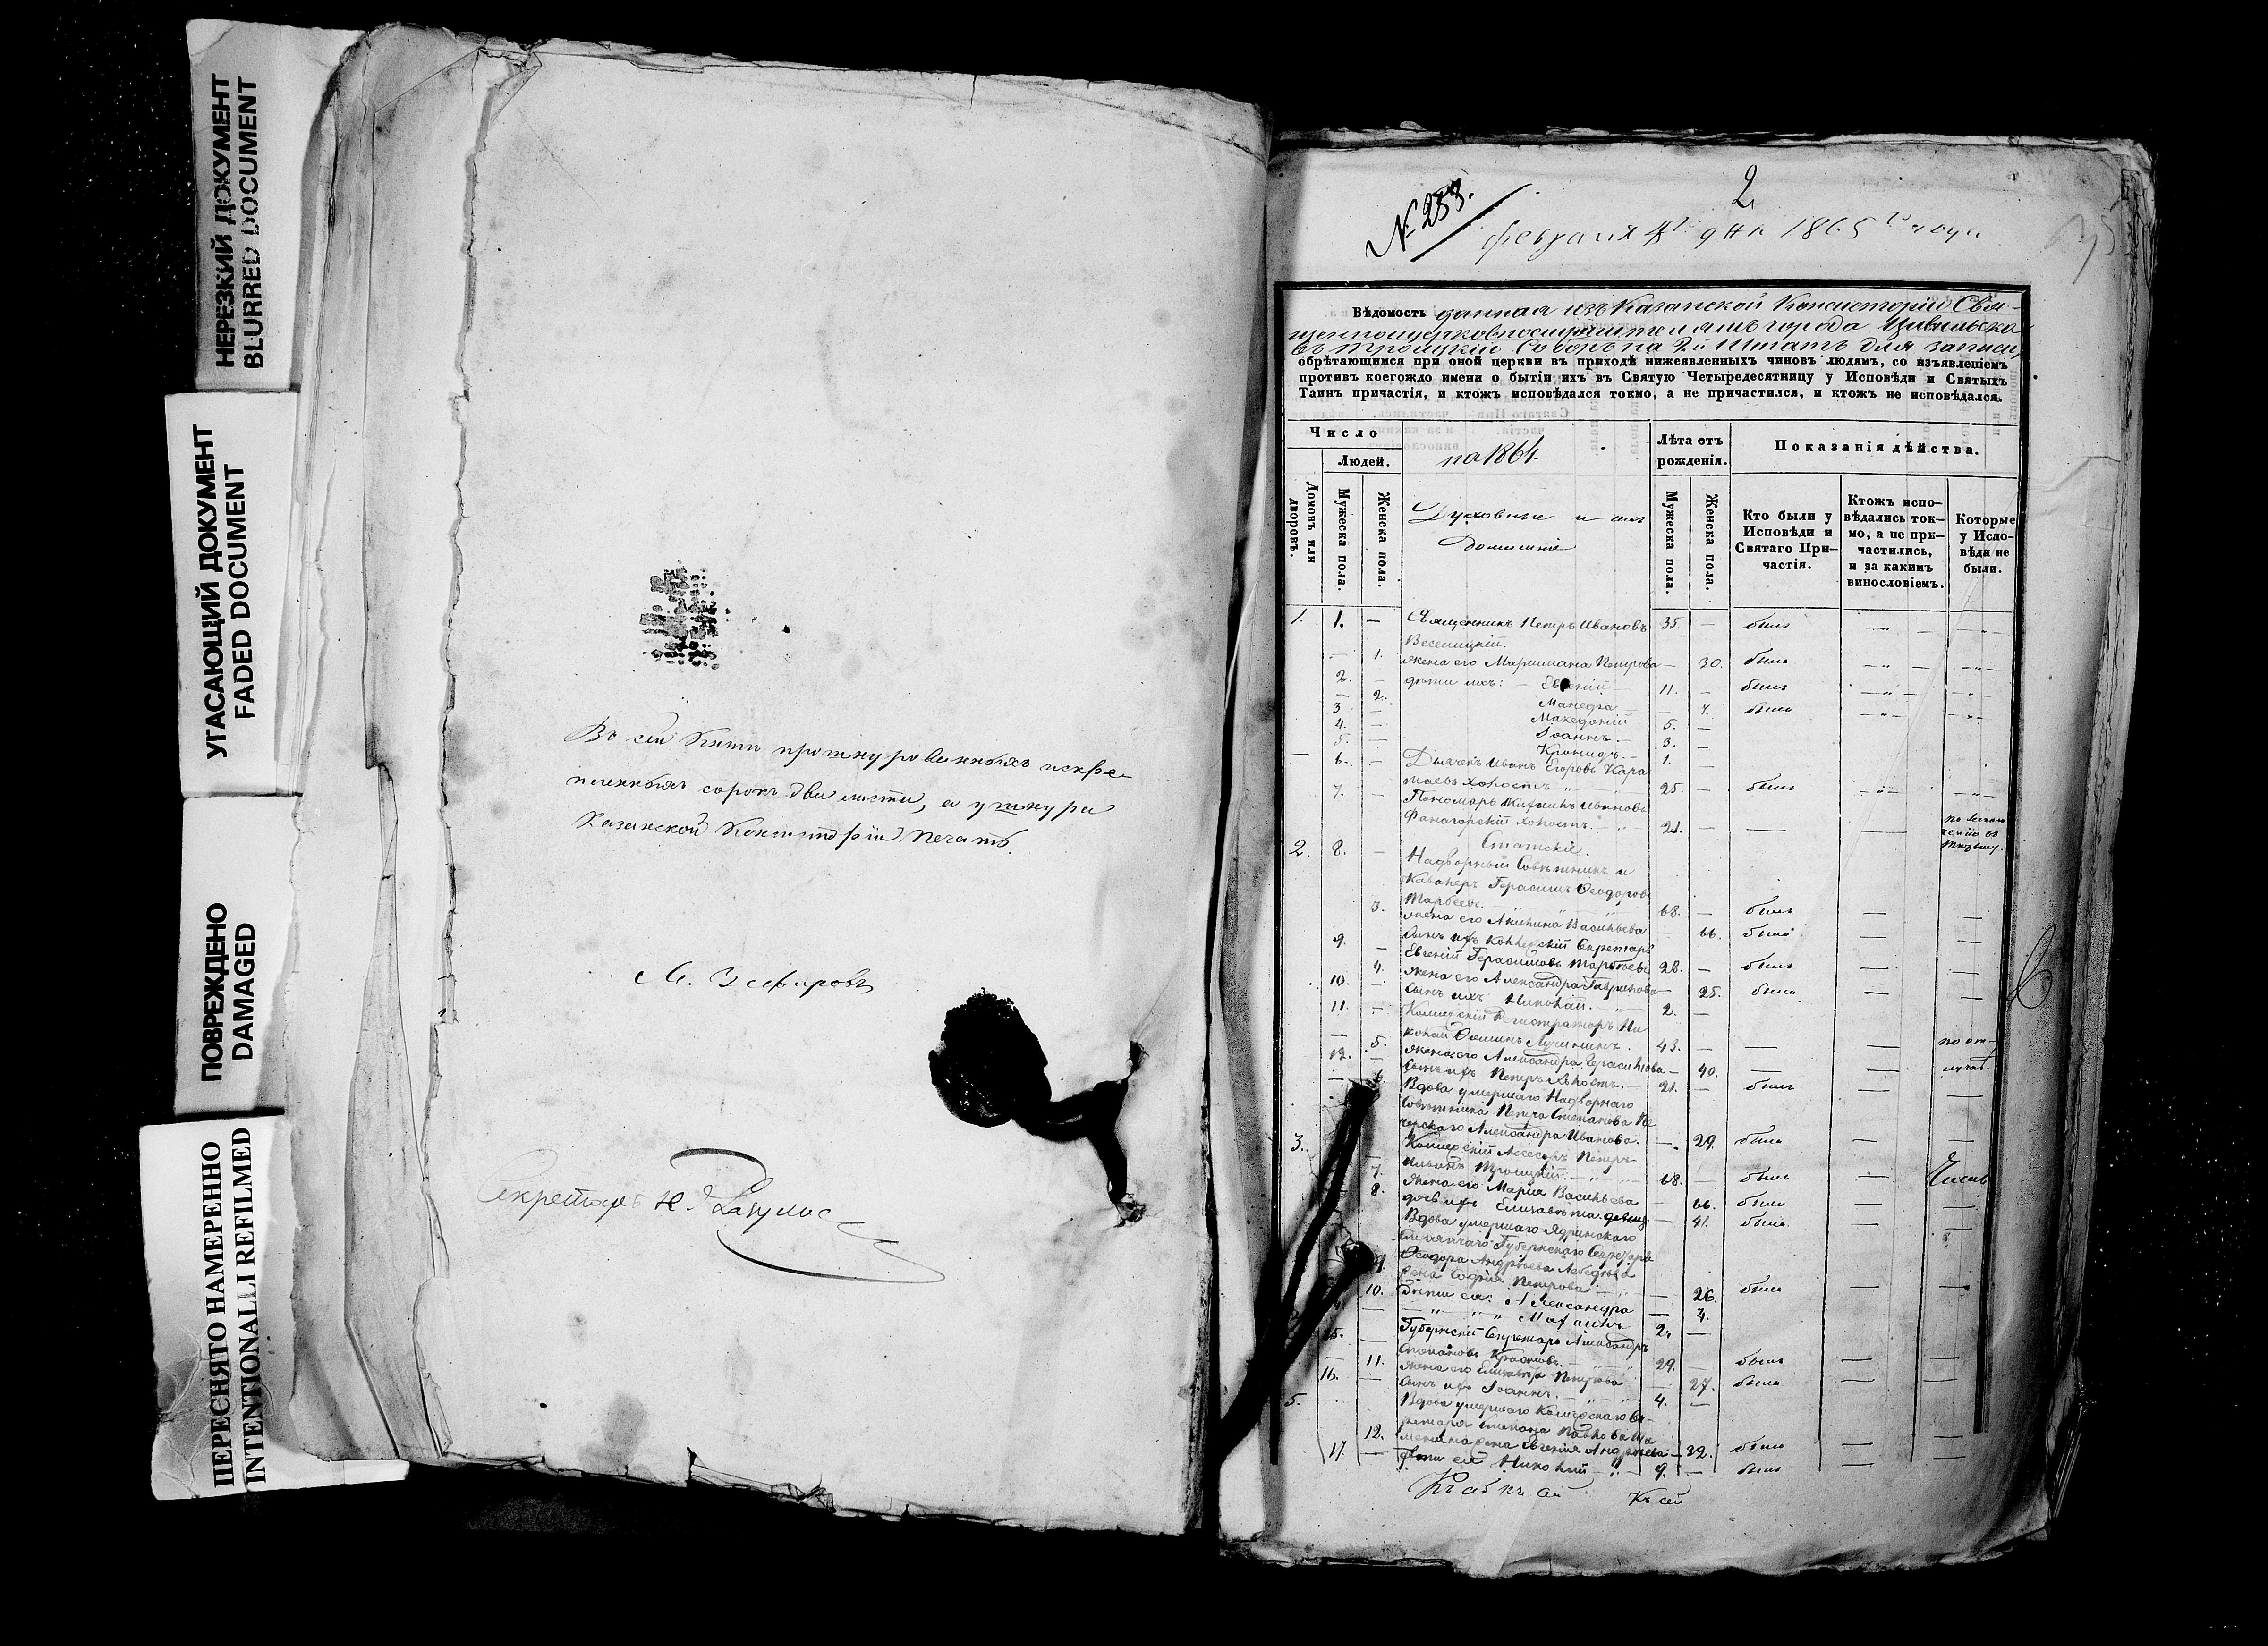 НЕРЕЗКИЙ ДОКУМЕНТ
BLURRED DOCUMENT
УГАСАЮЩИЙ ДОКУМЕНТ
FADED DOCUMENT
ПОВРЕЖДЕНО
DAMAGED
ПЕРЕСНЯТО НАМЕРЕННО
INTENTIONALLI REFILMED
Въ сей книгѣ прошнурованныхъ искре
пленныхъ сорокъ два листа, а у шнура
Казанской Консисторіи печать.
Секретарь Н.
№ 253.
2
февраля дня 1865 го года
Вѣдомость данная изъ Казанской Консисторіи Свя-
щенноцерковнослужителямъ города Цивильска
въ Троицкій Соборъ на 2й Штатъ для записи,
обрѣтающимся при оной церкви въ приходѣ нижеявленныхъ чиновъ людямъ, со изъявленіемъ
противъ коегождо имени о бытіи ихъ въ Святую Четыредесятницу у Исповѣди и Святыхъ
Таинъ причастія, и ктожъ исповѣдался токмо, а не причастился, и ктожъ не исповѣдался.
Число
Людей.
на 1864.
Лѣта отъ
рожденія.
Показанія дѣйства.
Домовъ или
дворовъ.
Мужеска пола.
Женска пола.
Духовные и ихъ
домашніе
Мужеска пола.
Женска пола.
Кто были у
Исповѣди и
Святаго При-
частія.
Ктожъ испо-
вѣдались ток-
мо, а не при-
частились,
и за какимъ
винословіемъ.
Которые
у Испо-
вѣди не
были.
1. 1. — Священникъ Петръ Ивановъ 35. — былъ
Веселицкій.
— 1. жена его Маріамна Петрова — 30. была
2. — дѣти ихъ: — Евгеній 11. — былъ
— 2. Манефа — 7. была
3 — Македоній 5. —
4. — Іоаннъ. — 3. —
5. — Кронидъ. — 1. —
6. — Дьячекъ Иванъ Егоровъ Кара
маевъ холостъ 25. — былъ
7. — Пономарь Ивановъ
Фанагорскій холостъ. 21. — —
Статскіе.
2. 8. — Надворный Совѣтникъ и
Кавалеръ Герасимъ Ѳеодоровъ
Тарбеевъ. 68. — былъ
3. жена его Васильева 66. была
9. — сынъ ихъ Коллежскій Секретарь
Евгеній Герасимовъ Тарбеевъ 28. — былъ
4. жена его Александра Гаврилова — 25. была
10. — сынъ ихъ Николай. 2. —
11. Коллежскій Регистраторъ Ни
колай Лучининъ. 43. — — по от-
— 5. жена его Александра Герасимова — 40. — лучкѣ.
12. — сынъ ихъ Петръ холостъ. 21. — былъ
— 6. Вдова умершаго Надворнаго
Совѣтника Петра Степанова Пе
черскаго Александра Иванова. — 29. была
3. Коллежскій Асесоръ Петръ
Ильинъ Троицкій. 68. — былъ
7. жена его Марія Васильева — 66. была
8. дочь ихъ Елизавета девица — 41. была
Вдова умершаго Ядринскаго
Стряпчаго Губернскаго Секретаря
Ѳеодора Андреева Лебедева
9. жена Софія Петрова — 26. была
10. Дѣти ея: Александра — 4.
Михаилъ 2. —
15. — Губернскій Секретарь Александръ
Степановъ Красновъ. 29. — былъ
— 11. жена его Елизавета Петрова 27. была
16. — сынъ ихъ Іоаннъ. 4. —
5. Вдова умершаго Коллежскаго Се-
кретаря Степана Павлова
12. жена Евгенія Андреева — 32. была
17 — дѣти ея Николай 9. — былъ